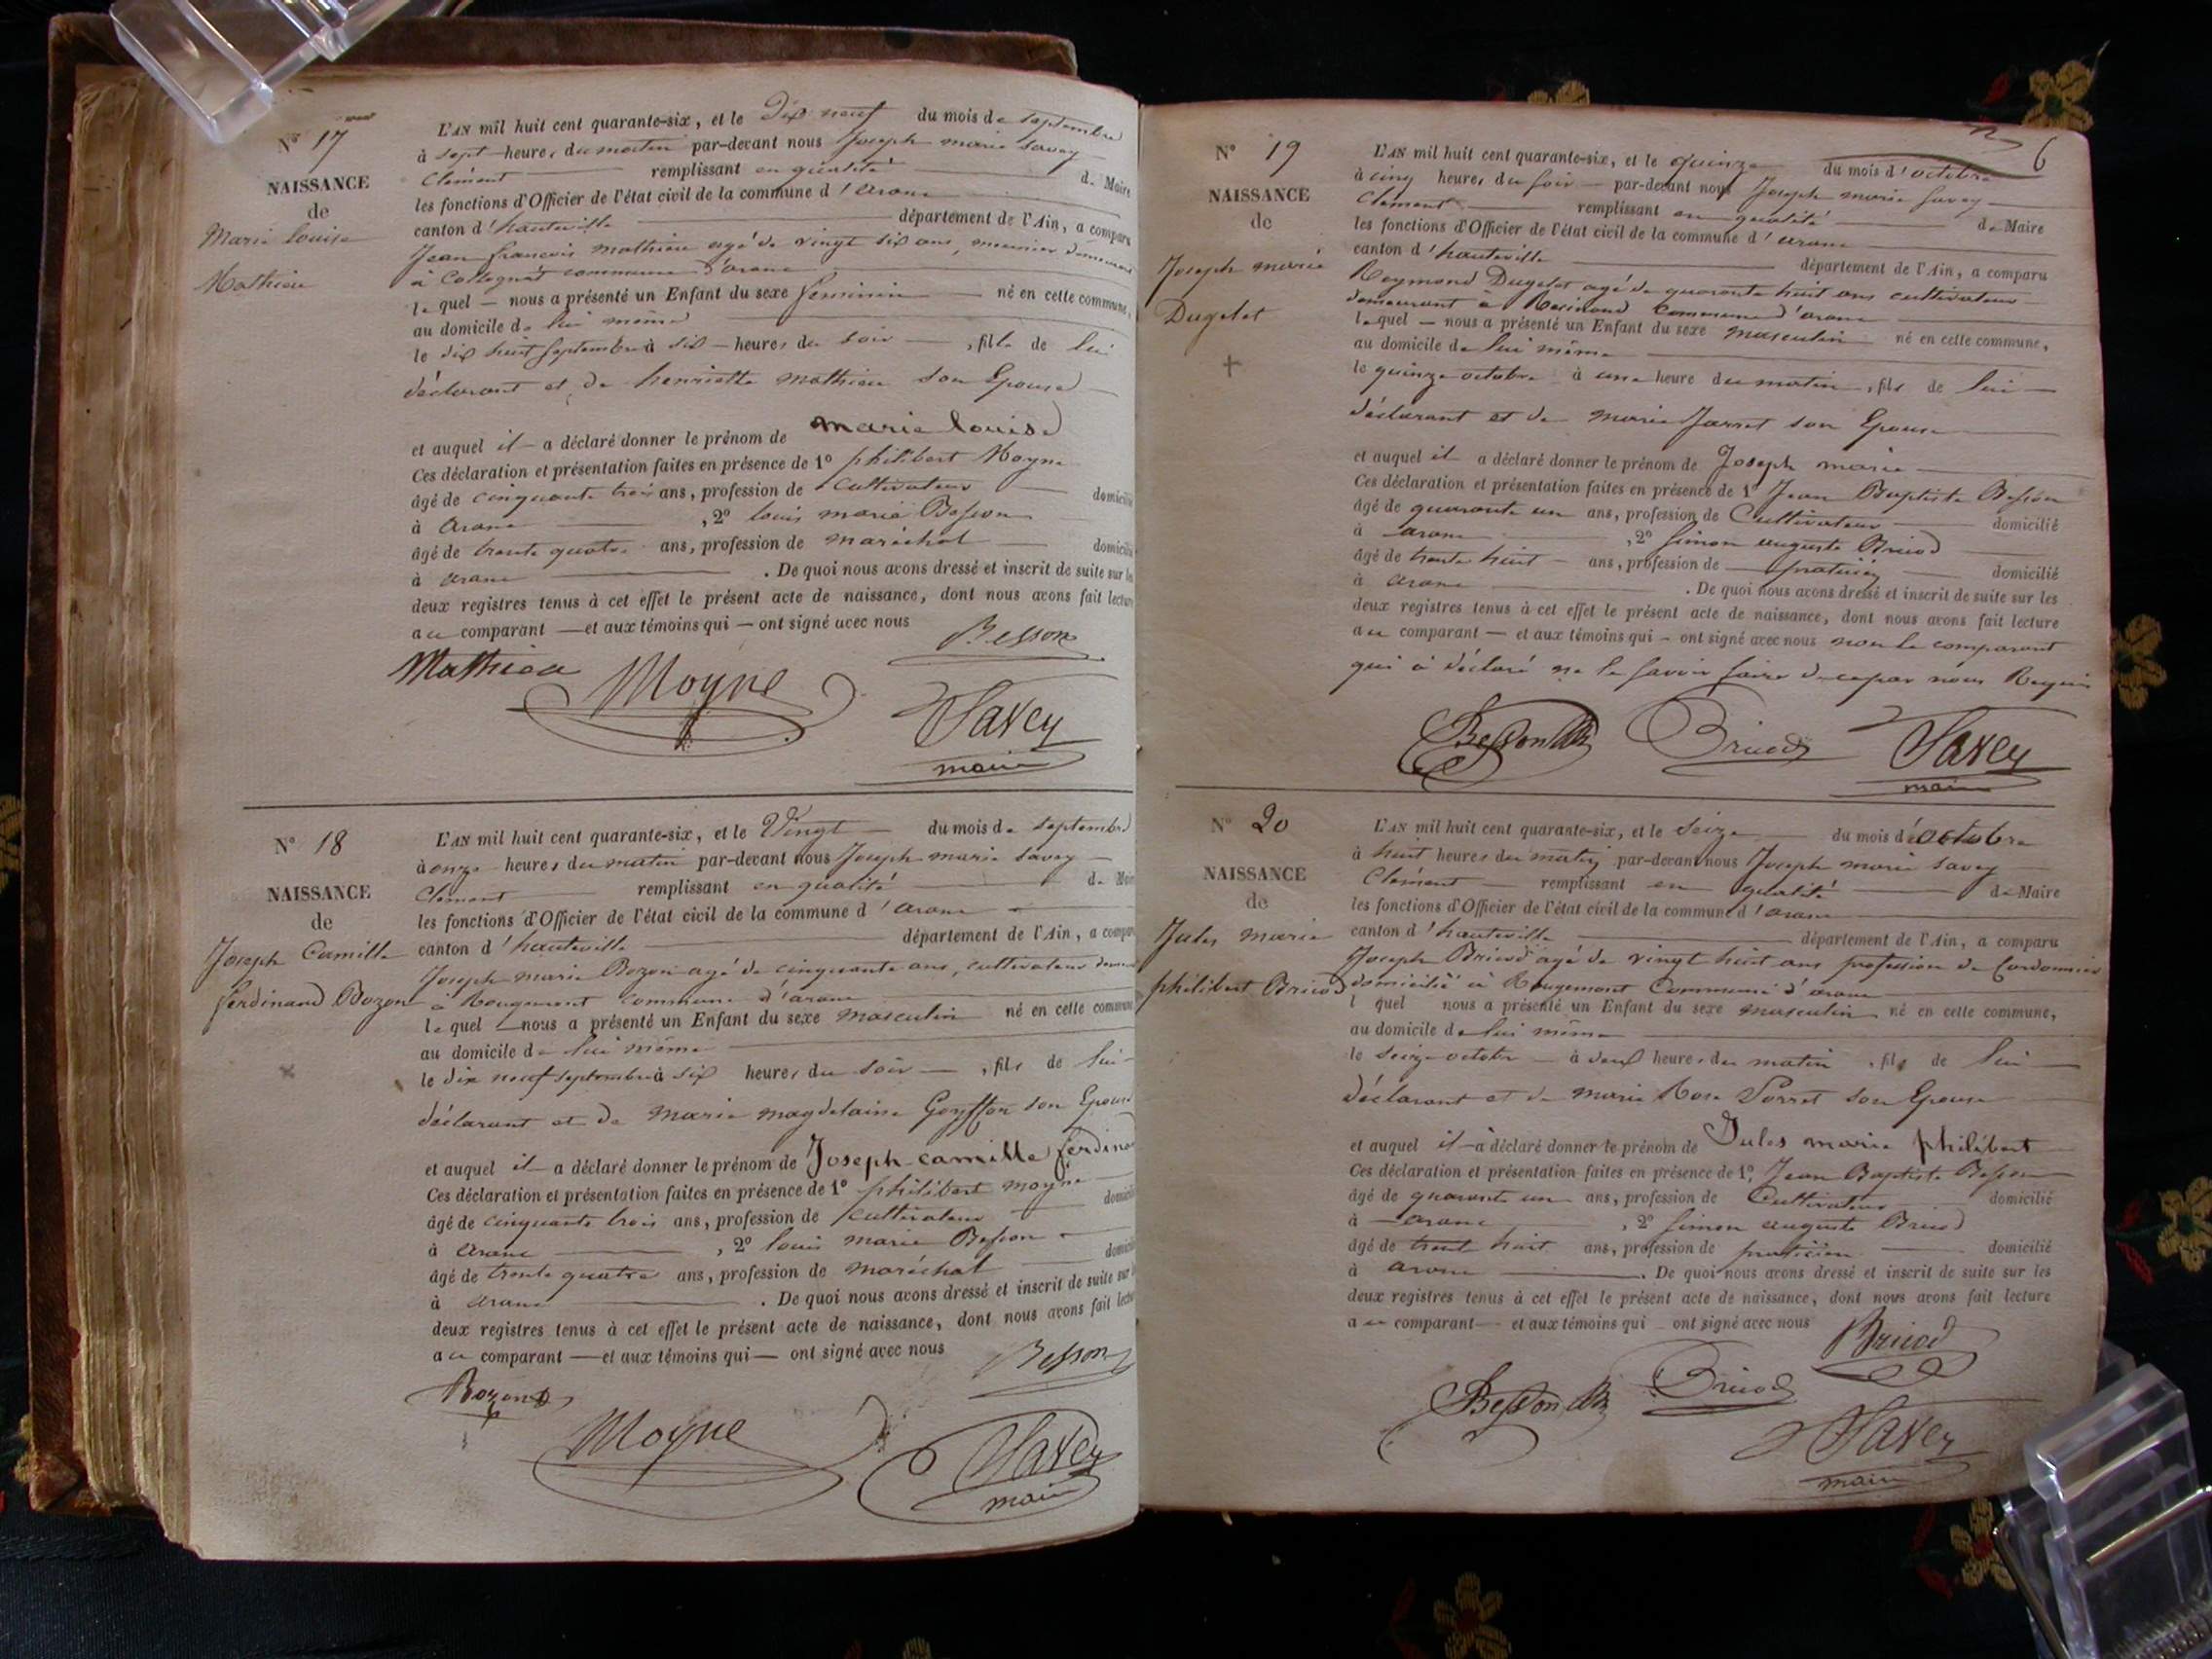 N° 17
NAISSANCE
de
Marie louise
Mathieu
L'AN mil huit cent quarante-six, et le Dix neuf du mois de septembre
à sept heures du matin par-devant nous Joseph marie savey
Clément remplissant en qualité de Maire
les fonctions d'Officier de l'état civil de la commune d'arane
canton d'hauteville département de l'Ain, a comparu
Jean françois mathieu agé de vingt six ans, meunier demeurant
à commune d'arane
lequel nous a présenté un Enfant du sexe feminin né en cette commune,
au domicile de lui même
le dix huit septembre à six heures du soir, fille de lui
déclarant et de henriette mathieu son Epouse
et auquel il a déclaré donner le prénom de marie louise
Ces déclaration et présentation faites en présence de 1° philibert Moyne
âgé de cinquante trois ans, profession de Cultivateur domicilié
à Arane, 2° louis marie Besson
âgé de trente quatre ans, profession de maréchal domicilié
à arane. De quoi nous avons dressé et inscrit de suite sur les
deux registres tenus à cet effet le présent acte de naissance, dont nous avons fait lecture
au comparant et aux témoins qui ont signé avec nous
Besson
Mathieu Moyne
Savey
maire
N° 18
NAISSANCE
de
Joseph Camille
ferdinand Bozon
L'AN mil huit cent quarante-six, et le Vingt du mois de septembre
à onze heures du matin par-devant nous Joseph marie savey
Clément remplissant en qualité de Maire
les fonctions d'Officier de l'état civil de la commune d'arane
canton d'hauteville département de l'Ain, a comparu
Joseph marie Bozon agé de cinquante ans, cultivateur
à Rougemont commune d'arane
lequel nous a présenté un Enfant du sexe masculin né en cette commune
au domicile de lui même
le dix neuf septembre à six heures du soir, fils de lui
déclarant et de marie magdelaine Goyffon son Epouse
et auquel il a déclaré donner le prénom de Joseph-camille ferdinand
Ces déclaration et présentation faites en présence de 1° philibert moyne
âgé de cinquante trois ans, profession de cultivateur domicilié
à Arane, 2° louis marie Besson
âgé de trente quatre ans, profession de maréchal domicilié
à arane. De quoi nous avons dressé et inscrit de suite sur les
deux registres tenus à cet effet le présent acte de naissance, dont nous avons fait lecture
au comparant et aux témoins qui ont signé avec nous
Besson
Bozon
Moyne
Savey
maire
6
N° 19
NAISSANCE
de
Joseph marie
Dugelet
L'AN mil huit cent quarante-six, et le quinze du mois d'octobre
à cinq heures du soir par-devant nous Joseph marie savey
Clément remplissant en qualité de Maire
les fonctions d'Officier de l'état civil de la commune d'arane
canton d'hauteville département de l'Ain, a comparu
Reymond Dugelet agé de quarante huit ans cultivateur
demeurant à commune d'arane
lequel nous a présenté un Enfant du sexe masculin né en cette commune,
au domicile de lui même
le quinze octobre à une heure du matin, fils de lui
déclarant et de marie Jarret son Epouse
et auquel il a déclaré donner le prénom de Joseph marie
Ces déclaration et présentation faites en présence de 1° Jean Baptiste Besson
âgé de quarante un ans, profession de Cultivateur domicilié
à arane, 2° simon auguste Bricod
âgé de trente huit ans, profession de praticien domicilié
à arane. De quoi nous avons dressé et inscrit de suite sur les
deux registres tenus à cet effet le présent acte de naissance, dont nous avons fait lecture
au comparant et aux témoins qui ont signé avec nous non le comparant
qui à déclaré ne le savoir faire de ce par nous Requis
Besson Bricod Savey
maire
N° 20
NAISSANCE
de
Jules marie
philibert Bricod
L'AN mil huit cent quarante-six, et le seize du mois d'octobre
à huit heures du matin par-devant nous Joseph marie savey
Clément remplissant en qualité de Maire
les fonctions d'Officier de l'état civil de la commune d'arane
canton d'hauteville département de l'Ain, a comparu
Joseph Bricod agé de vingt huit ans profession de Cordonnier
domicilié à Rougemont Commune d'arane
l quel nous a présenté un Enfant du sexe masculin né en cette commune,
au domicile de lui même
le seize octobre à deux heures du matin, fils de lui
déclarant et de marie Rose son Epouse
et auquel il a déclaré donner le prénom de Jules marie philibert
Ces déclaration et présentation faites en présence de 1° Jean Baptiste Besson
âgé de quarante un ans, profession de Cultivateur domicilié
à arane, 2° simon auguste Bricod
âgé de trent huit ans, profession de praticien domicilié
à arane. De quoi nous avons dressé et inscrit de suite sur les
deux registres tenus à cet effet le présent acte de naissance, dont nous avons fait lecture
au comparant et aux témoins qui ont signé avec nous
Bricod
Besson Bricod
Savey
maire